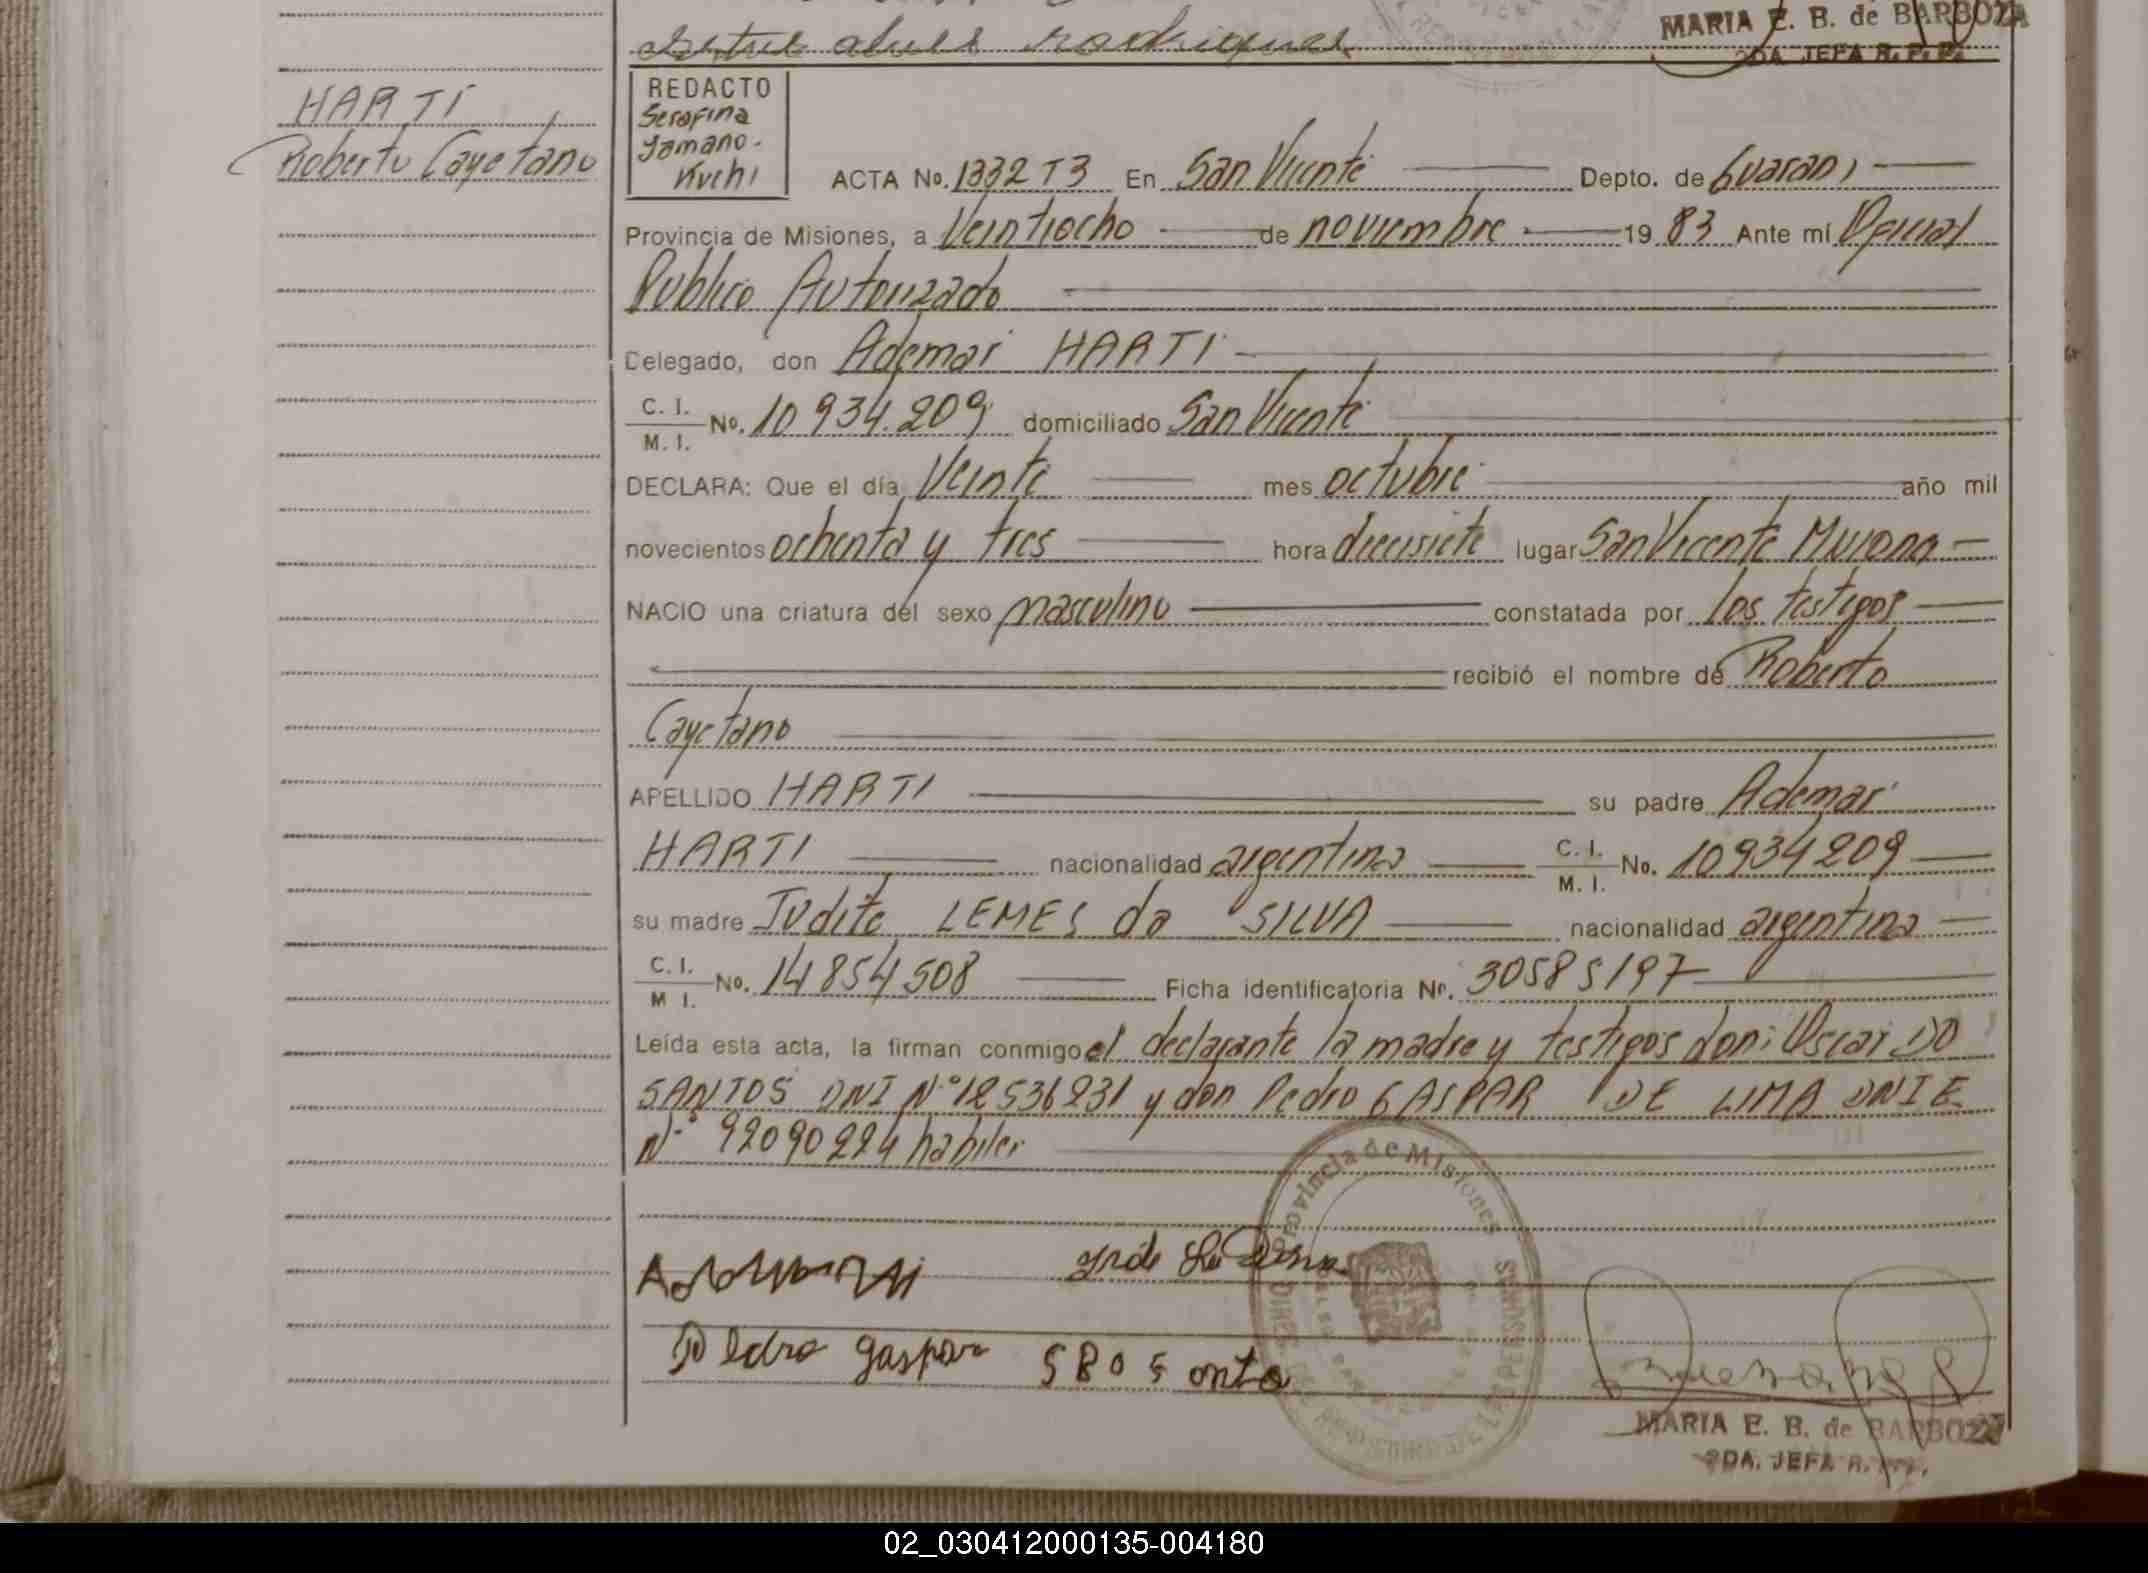 Rodrigues
MARIA E. B. de BARBOZA
2DA. JEFA R. P. P.
HARTI
Roberto Cayetano
REDACTO
Serafina
Yamano.
Kuchi
ACTA No. 1332 T3 En San Vicente Depto. de Guarani
Provincia de Misiones, a Veintiocho de noviembre 19 83 Ante mí Oficial
Publico Autorizado
Delegado, don Ademar HARTI
C. I.
M. I. No. 10 934.209 domiciliado San Vicente
DECLARA: Que el día Veinte mes octubre año mil
novecientos ochenta y tres hora diecisiete lugar San Vicente Misiones
NACIO una criatura del sexo masculino constatada por los testigos
recibió el nombre de Roberto
Cayetano
APELLIDO HARTI su padre Ademar
HARTI nacionalidad argentina C. I. M. I. No. 10934209
su madre Judite LEMES da SILVA nacionalidad argentina
C. I. M I. No. 14 854 508 Ficha identificatoria Nº. 30585197
Leída esta acta, la firman conmigo el declarante la madre y testigos don: Oscar DO
SANTOS DNI Nº 12536231 y don Pedro GASPAR DE LIMA DNIE
Nº 92090224 habiles
Provincia de Misiones
Pedro gaspar
MARIA E. B. de BARBOZA
2DA. JEFA R. P. P.
02_030412000135-004180